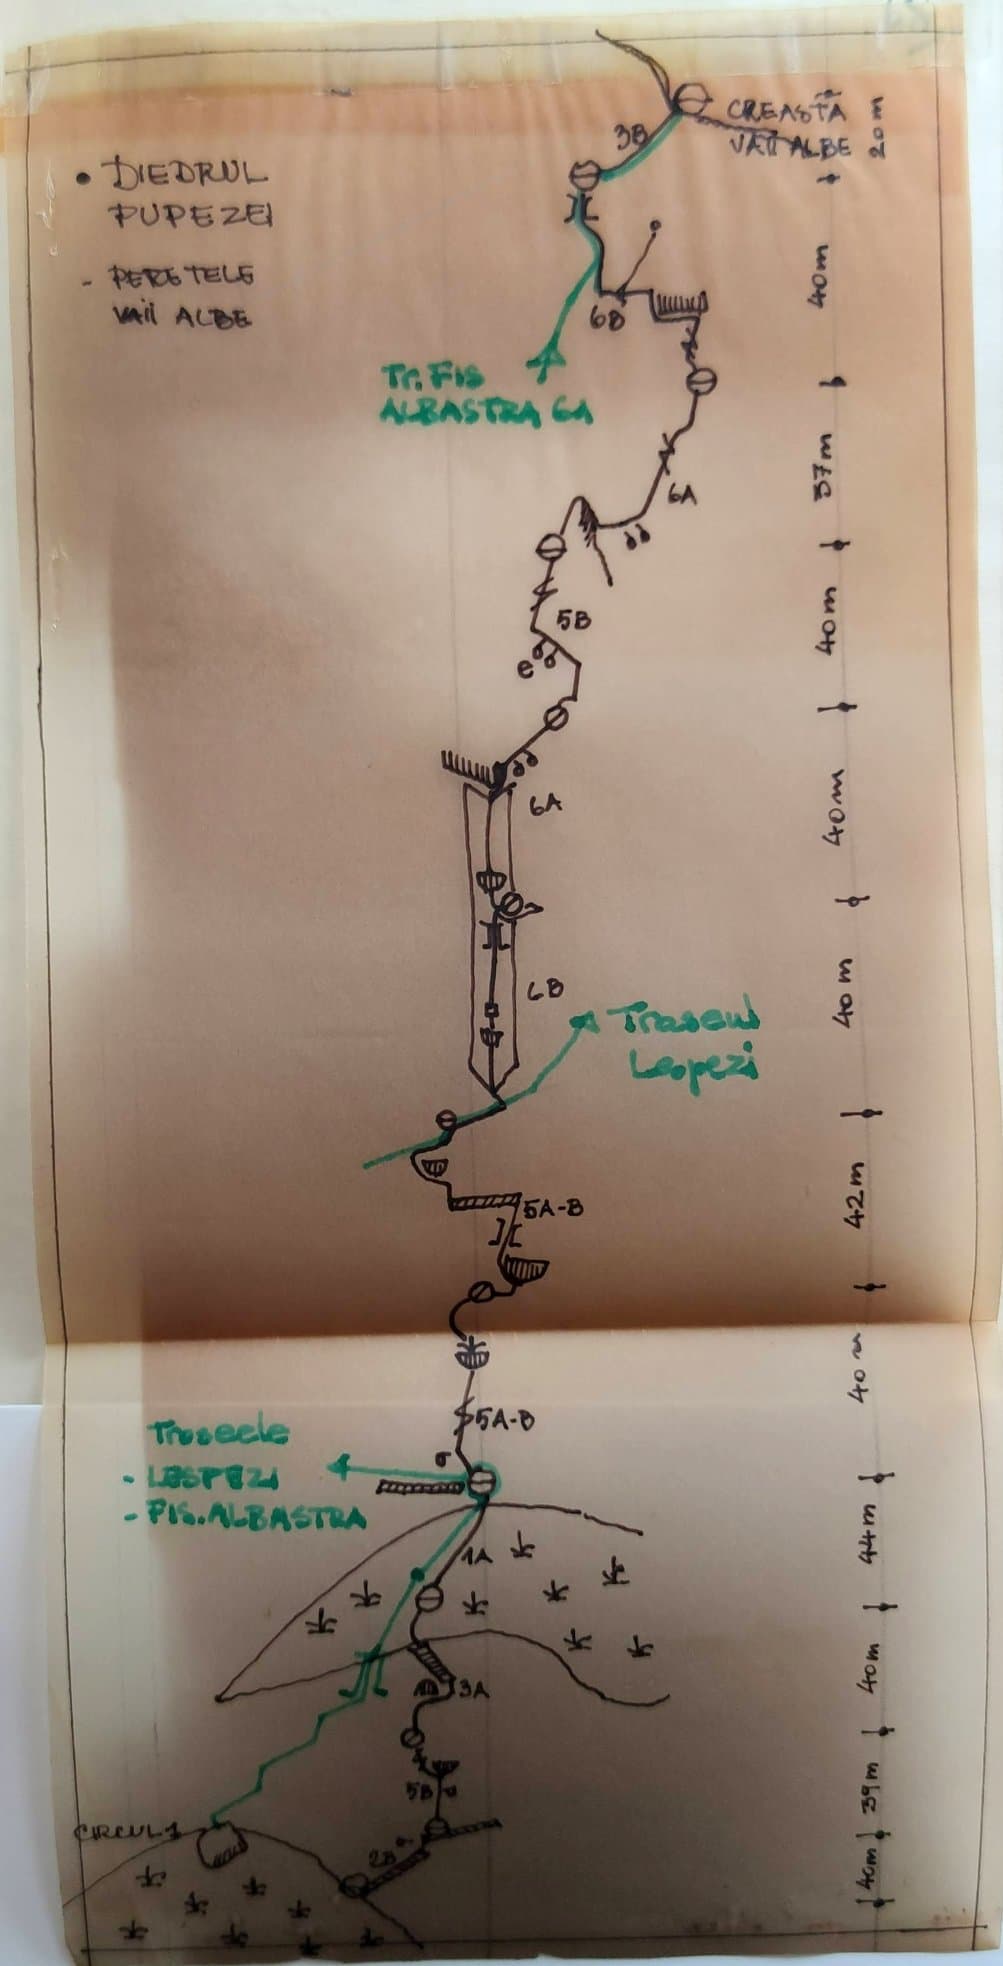 CREASTA
VĂII ALBE
20m
3B
• DIEDRUL
PUPEZEI
- PERETELE
VAII ALBE
40m
6B
Tr. Fis
ALBASTRA 6A
37m
6A
40m
5B
e
40m
6A
40m
6B
Traseul
Lespezi
42m
5A-B
40m
5A-B
Traseele
- LESPEZI
- FIS. ALBASTRA
44m
1A
40m
3A
39m
5B
CIRCUL 1
2B
40m